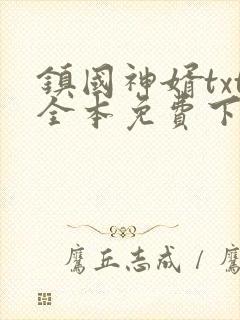 鎮國神婿txt
全本免費下
鷹丘志成 / 鷹